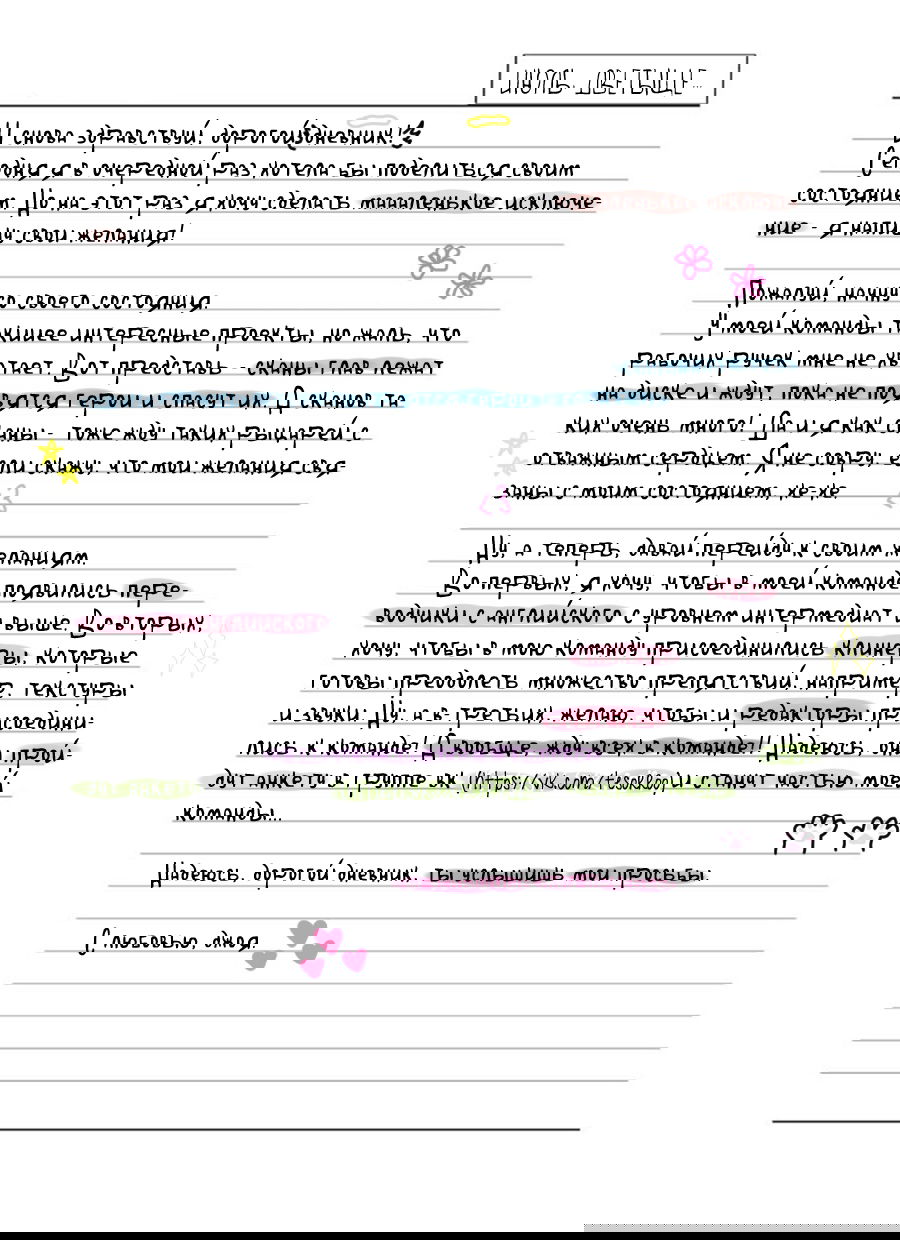 июль, дветыще...
И снова здравствуй, дорогой дневник!
Сегодня я в очередной раз хотела бы поделиться своим
состоянием. Но на этот раз я хочу сделать маааленькое исключе-
ние - я напишу свои желания!
Пожалуй, начну со своего состояния.
У моей команды такииее интересные проекты, но жаль, что
рабочих ручек мне не хватает. Вот представь - сканы глав лежат
на диске и ждут, пока не появятся герои и спасут их. А сканов та-
ких очень много! Да и я как сканы - тоже жду таких рыцарей с
отважным сердцем. Я не совру, если скажу, что мои желания свя-
заны с моим состоянием, хе-хе.
Ну а теперь, давай перейду к своим желаниям.
Во-первых, я хочу, чтобы в моей команде появились пере-
водчики с английского с уровнем интермедиат и выше. Во-вторых,
хочу, чтобы в мою команду присоединились клинеры, которые
готовы преодолеть множество препятствий, например, текстуры
и звуки. Ну, а в-третьих, желаю, чтобы и редакторы присоедини-
лись к команде! А вообще, жду всех в команде!! Надеюсь, они прой-
дут анкету в группе вк и станут частью моей
команды...
Надеюсь, дорогой дневник, ты услышишь мои просьбы.
С любовью, джоя.